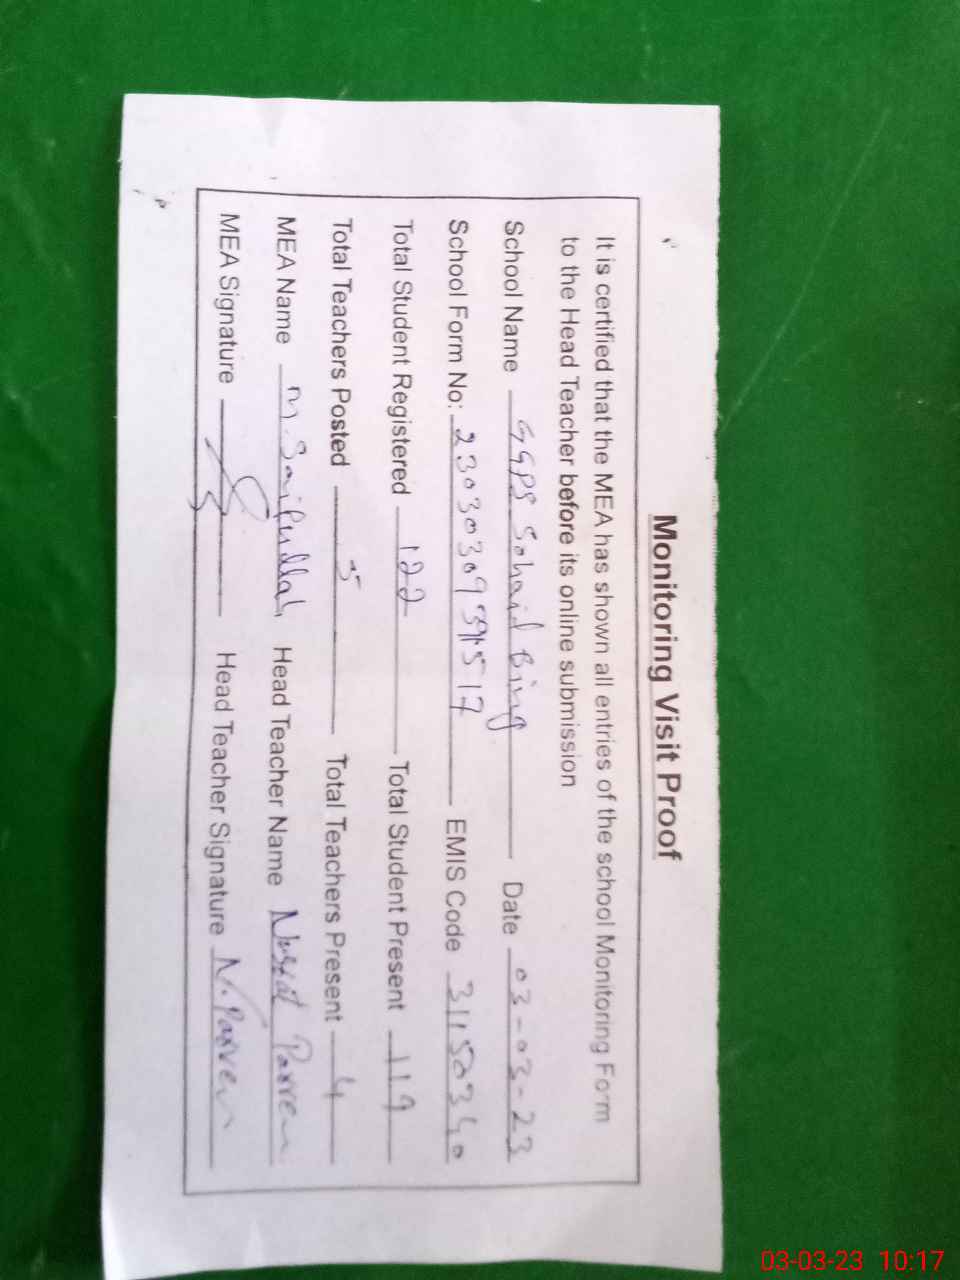 Monitoring Visit Proof
It is certified that the MEA has shown all entries of the school Monitoring Form
to the Head Teacher before its online submission
School Name GGPS Sohaid Bing Date 03-03-23
School Form No: EMIS Code 31150340
Total Student Registered 122 Total Student Present 119
Total Teachers Posted 5 Total Teachers Present 4
MEA Name M. Saifullah Head Teacher Name Nusrat Parveen
MEA Signature Head Teacher Signature N. Parveen
03-03-23 10:17